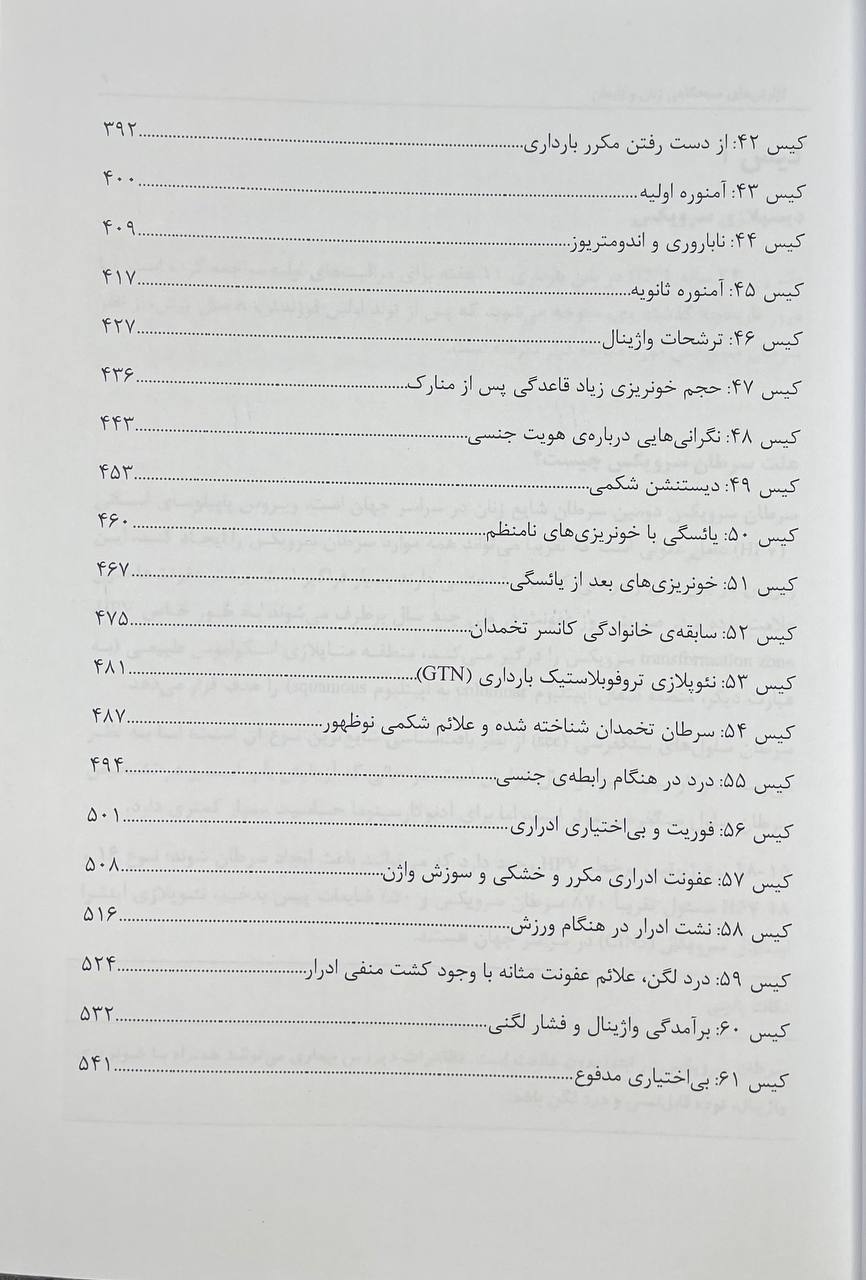 کیس ۴۲: از دست رفتن مکرر بارداری................۳۹۲
کیس ۴۳: آمنوره اولیه................۴۰۰
کیس ۴۴: ناباروری و اندومتریوز................۴۰۹
کیس ۴۵: آمنوره ثانویه................۴۱۷
کیس ۴۶: ترشحات واژینال................۴۲۷
کیس ۴۷: حجم خونریزی زیاد قاعدگی پس از منارک................۴۳۶
کیس ۴۸: نگرانی‌هایی درباره‌ی هویت جنسی................۴۴۳
کیس ۴۹: دیستنشن شکمی................۴۵۳
کیس ۵۰: یائسگی با خونریزی‌های نامنظم................۴۶۰
کیس ۵۱: خونریزی‌های بعد از یائسگی................۴۶۷
کیس ۵۲: سابقه‌ی خانوادگی کانسر تخمدان................۴۷۵
کیس ۵۳: نئوپلازی تروفوبلاستیک بارداری (GTN)................۴۸۱
کیس ۵۴: سرطان تخمدان شناخته شده و علائم شکمی نوظهور................۴۸۷
کیس ۵۵: درد در هنگام رابطه‌ی جنسی................۴۹۴
کیس ۵۶: فوریت و بی‌اختیاری ادراری................۵۰۱
کیس ۵۷: عفونت ادراری مکرر و خشکی و سوزش واژن................۵۰۸
کیس ۵۸: نشت ادرار در هنگام ورزش................۵۱۶
کیس ۵۹: درد لگن، علائم عفونت مثانه با وجود کشت منفی ادرار................۵۲۴
کیس ۶۰: برآمدگی واژینال و فشار لگنی................۵۳۲
کیس ۶۱: بی‌اختیاری مدفوع................۵۴۱